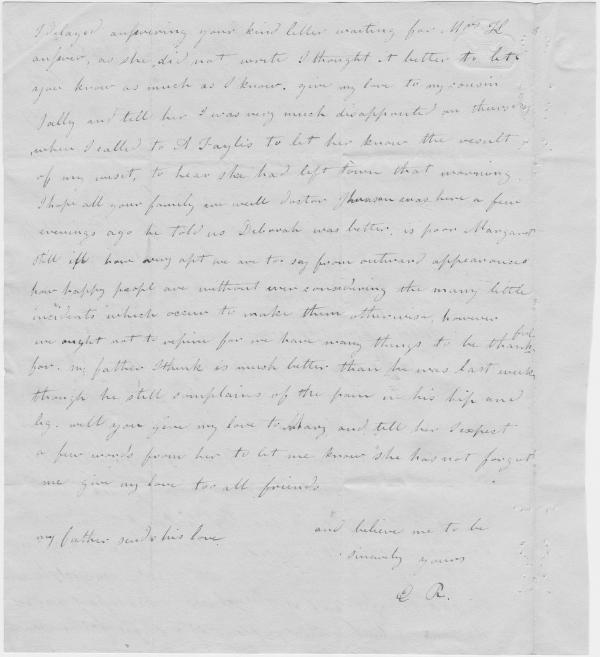 I delayed answering your kind letter waiting for Mrs H
answer, as she did not write I thought it better to let
you know as much as I know. give my love to my cousin
Sally and tell her I was very much disappointed on thursday
when I called to A Taylis to let her know the result
of my visit, to hear she had left town that morning
I hope all your family are well doctor Jhonson was here a few
evenings ago he told us Deborah was better. is poor Margaret
still ill how very apt we are to say from outward appearances
how happy peopl are without ever considering the many little
incidents which occur to make them otherwise, however
we ought not to repine for we have many things to be thankful
for. my father I think is much better than he was last week
though he still complains of the pain in his hip and
leg. will you give my love to Mary and tell her I expect
a few words from her to let me know she has not forgot
me give my love too all friends
my father sends his love and believe me to be
sincerely yours
R.